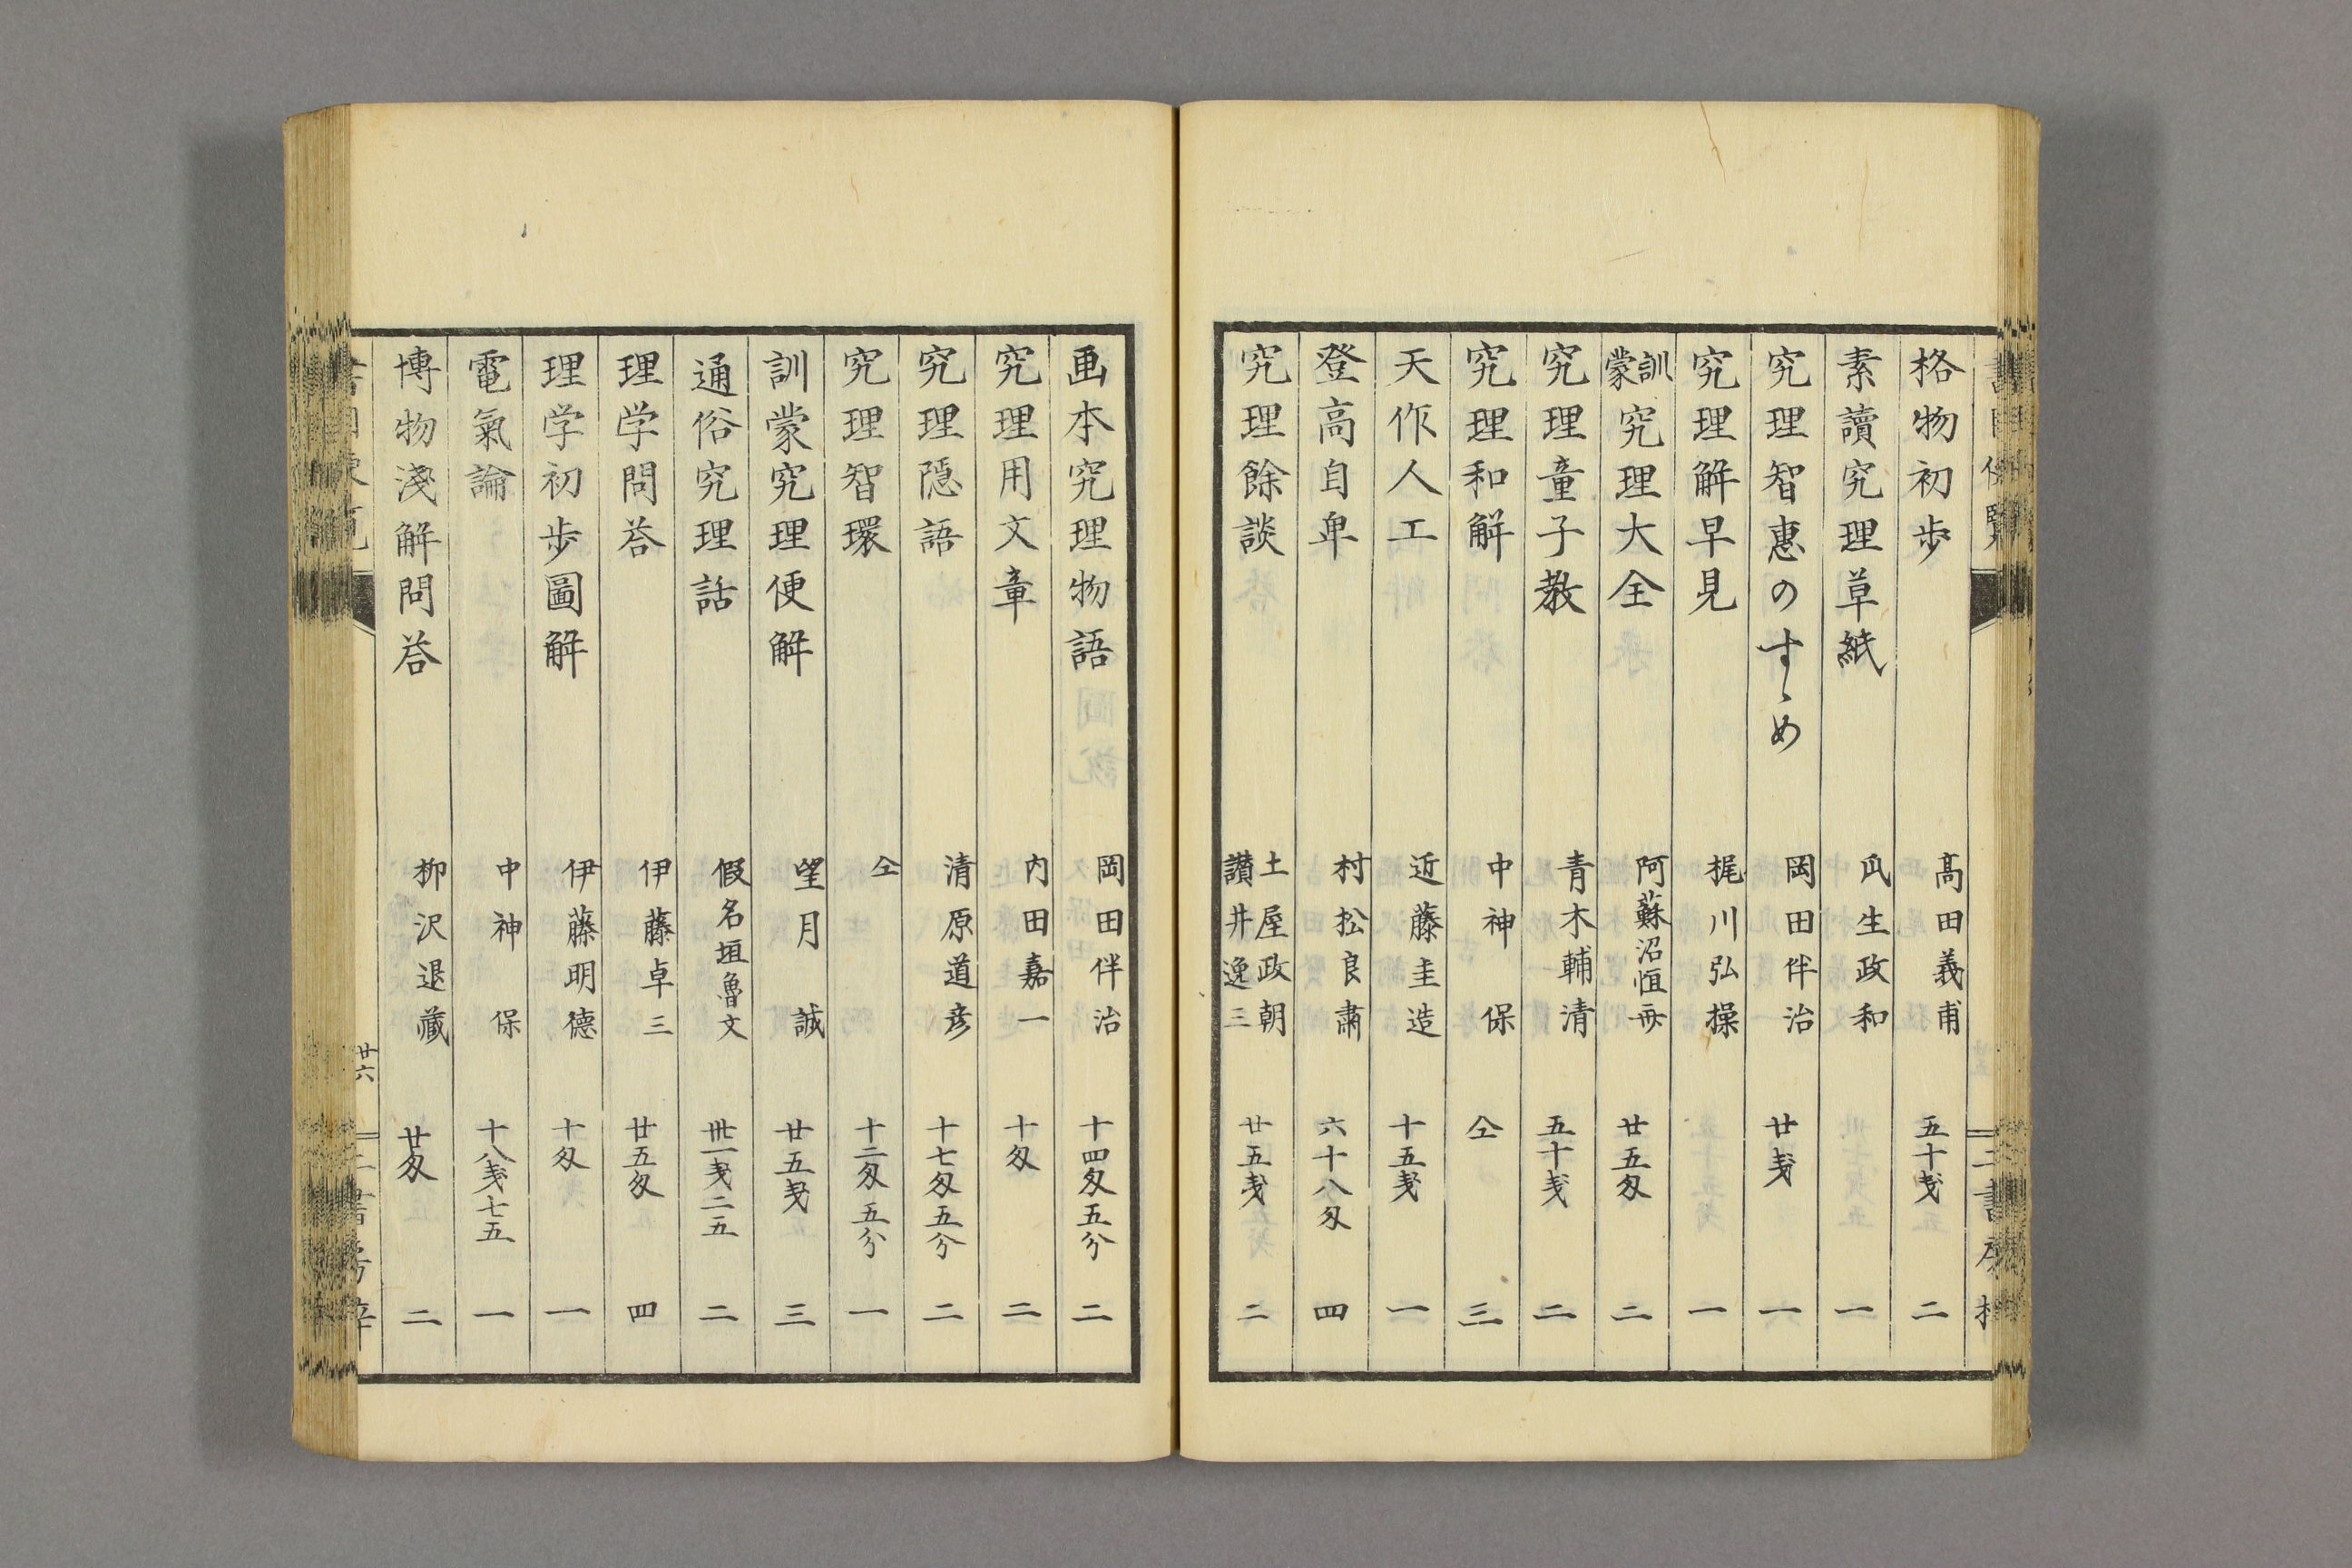 格物初歩 高田義甫 五十戔 二
素讀究理草紙 瓜生政和 一
究理智惠のすゝめ 岡田伴治 廿戔 一
究理解早見 梶川弘操 一
訓蒙究理大全 阿蘇沼恒 廿五匁 二
究理童子教 青木輔清 五十戔 二
究理和解 中神保 仝 三
天作人工 近藤圭造 十五戔 一
登高自卑 村松良肅 六十八匁 四
究理餘談 土屋政朝 讃井逸三 廿五戔 二
画本究理物語 岡田伴治 十四匁五分 二
究理用文章 内田嘉一 十匁 二
究理隠語 清原道彦 十七匁五分 二
究理智環 仝 十二匁五分 一
訓蒙究理便解 望月誠 廿五戔 三
通俗究理話 假名垣魯文 卅一戔二五 二
理学問荅 伊藤卓三 廿五匁 四
理学初歩圖解 伊藤明德 十匁 一
電氣論 中神保 十八戔七五 一
博物淺解問荅 柳沢退藏 廿匁 二
廿六